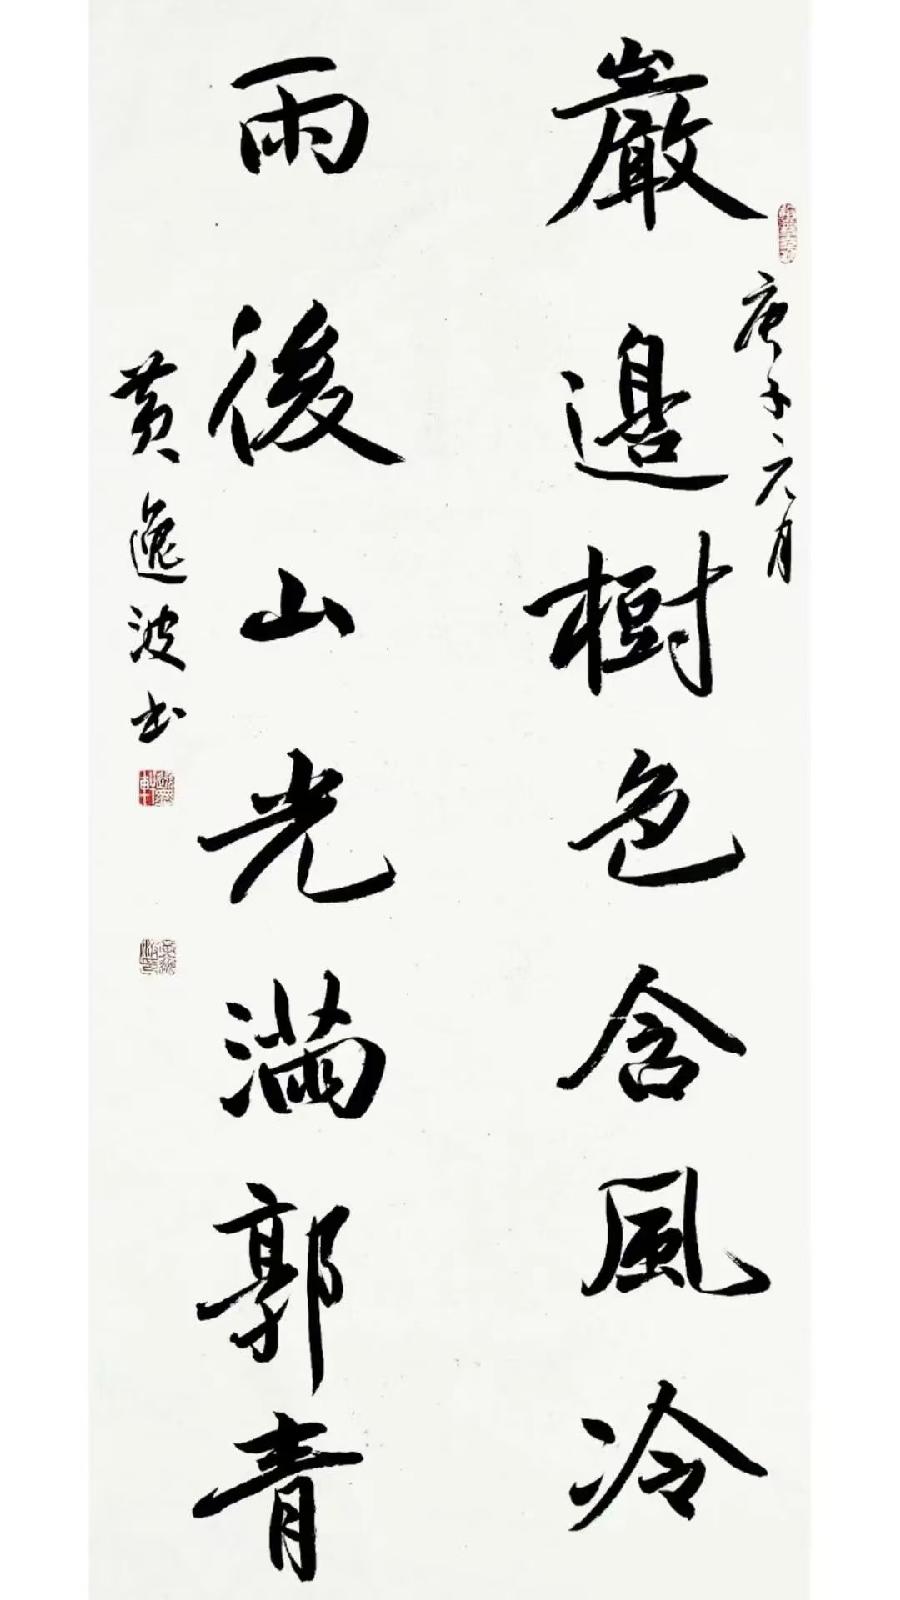 庚子元月
巖邊樹色含風冷
雨後山光滿郭青
黄逸波书